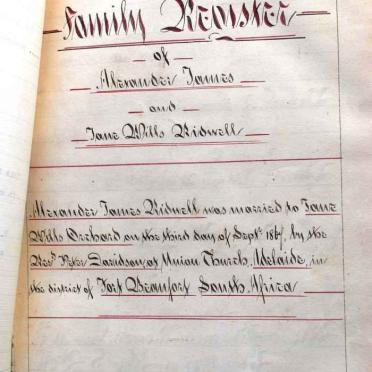 Family Register
of
Alexander James
and
Jane Wills Bidwell
Alexander James Bidwell was married to Jane
Wills Orchard on the third day of Septr. 1867, by the
Revd. Peter Davidson, at Union Church, Adelaide, in
the district of Fort Beaufort South Africa